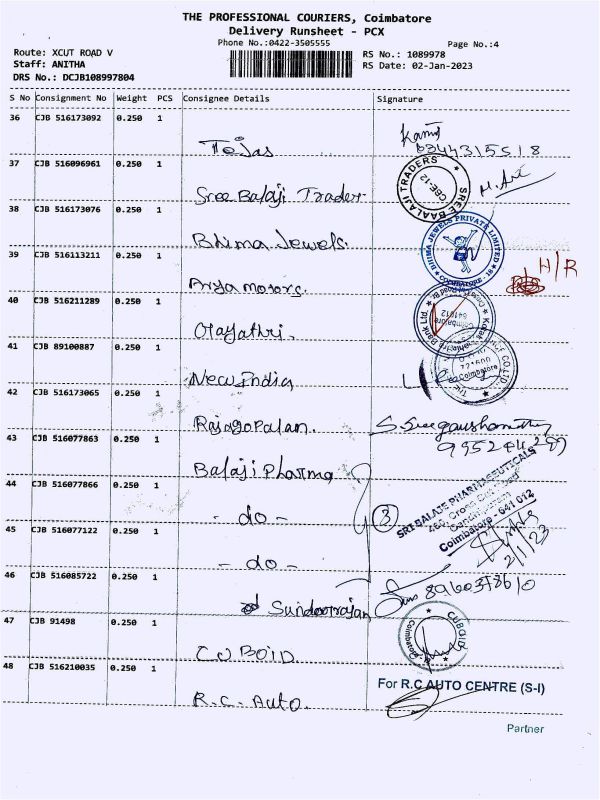 THE PROFESSIONAL COURIERS, Coimbatore
Delivery Runsheet - PCX
Phone No.:0422-3505555
Page No.:4
Route: XCUT ROAD V
RS No.: 1089978
Staff: ANITHA
RS Date: 02-Jan-2023
DRS No.: DCJB108997804
S No Consignment No Weight PCS Consignee Details Signature
36 CJB 516173092 0.250 1
Tejas
8344315518
37 CJB 516096961 0.250 1
Sree Balaji Trader
SREE BAALAJI TRADERS
CBE-12
38 CJB 516173076 0.250 1
Bhima Jewels.
BHIMA JEWELS PRIVATE LIMITED
COIMBATORE - 18
39 CJB 516113211 0.250 1
Priya motors.
H/R
40 CJB 516211289 0.250 1
Gayathri.
Coimbatore
641012
41 CJB 89100887 0.250 1
New India
Coimbatore
42 CJB 516173065 0.250 1
Rajagopalan.
43 CJB 516077863 0.250 1
Balaji Pharma
44 CJB 516077866 0.250 1
- do -
3
SRI BALAJE PHARMACEUTICALS
Coimbatore - 641 012
2/1/23
45 CJB 516077122 0.250 1
- do -
46 CJB 516085722 0.250 1
Sundarrajan
47 CJB 91498 0.250 1
CUBOID
CUBOID
Coimbatore
48 CJB 516210035 0.250 1
R.C. Auto.
For R.C AUTO CENTRE (S-I)
Partner